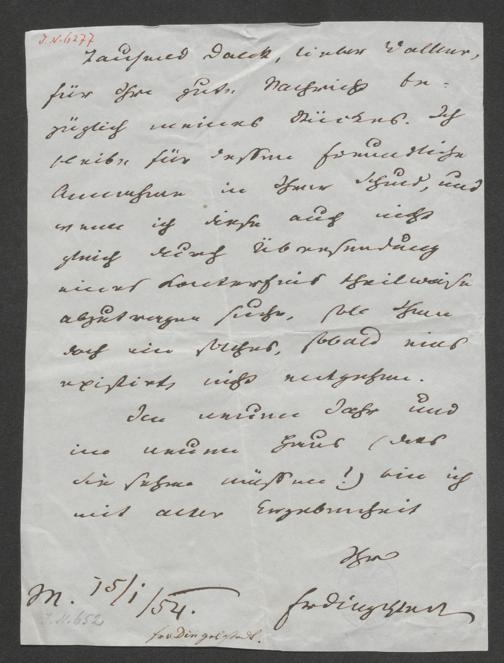 J.N. 6277
Tausend Dank, lieber Walther,
für Ihre gute Nachricht be-
züglich meines Stückes. Ich
bleibe für dessen freundliche
Annahme in Ihrer Schuld, und
wenn ich diese auch nicht
gleich durch Übersendung
eines Konterfeis theilweise
abzutragen suche, soll Ihnen
doch ein solches, sobald eines
existirt, nicht entgehen.
Im neuen Jahr und
im neuen Haus (das
Sie sehen müssen!) bin ich
mit alter Ergebenheit
Ihr
M. 15/1/54.
FrDingelstedt
J.N. 652
Frz Dingelstedt.